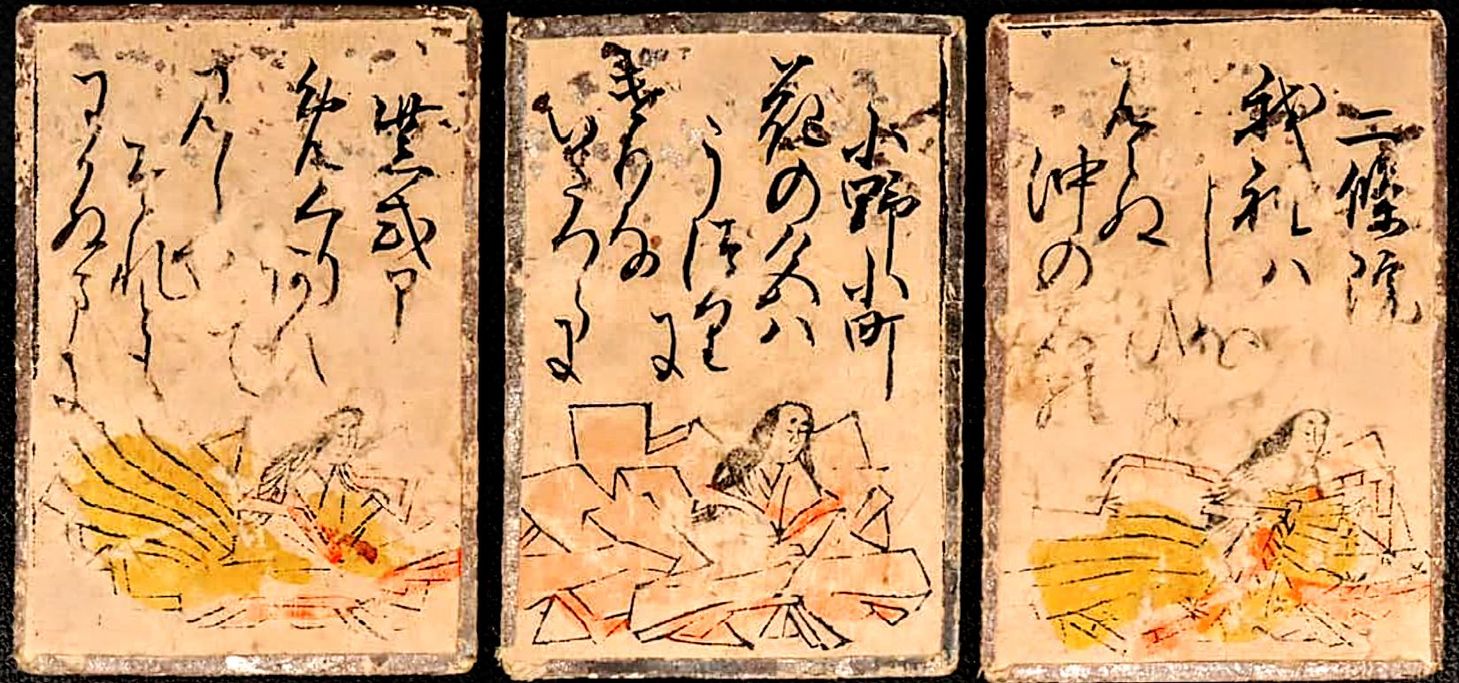 二條院
我袖ハ
し
見えぬ
沖の
小野小町
花の色ハ
うつ里に
けりな
いたつらに
紫式卩
めくり阿ひて
見し
それとも
わかぬまに